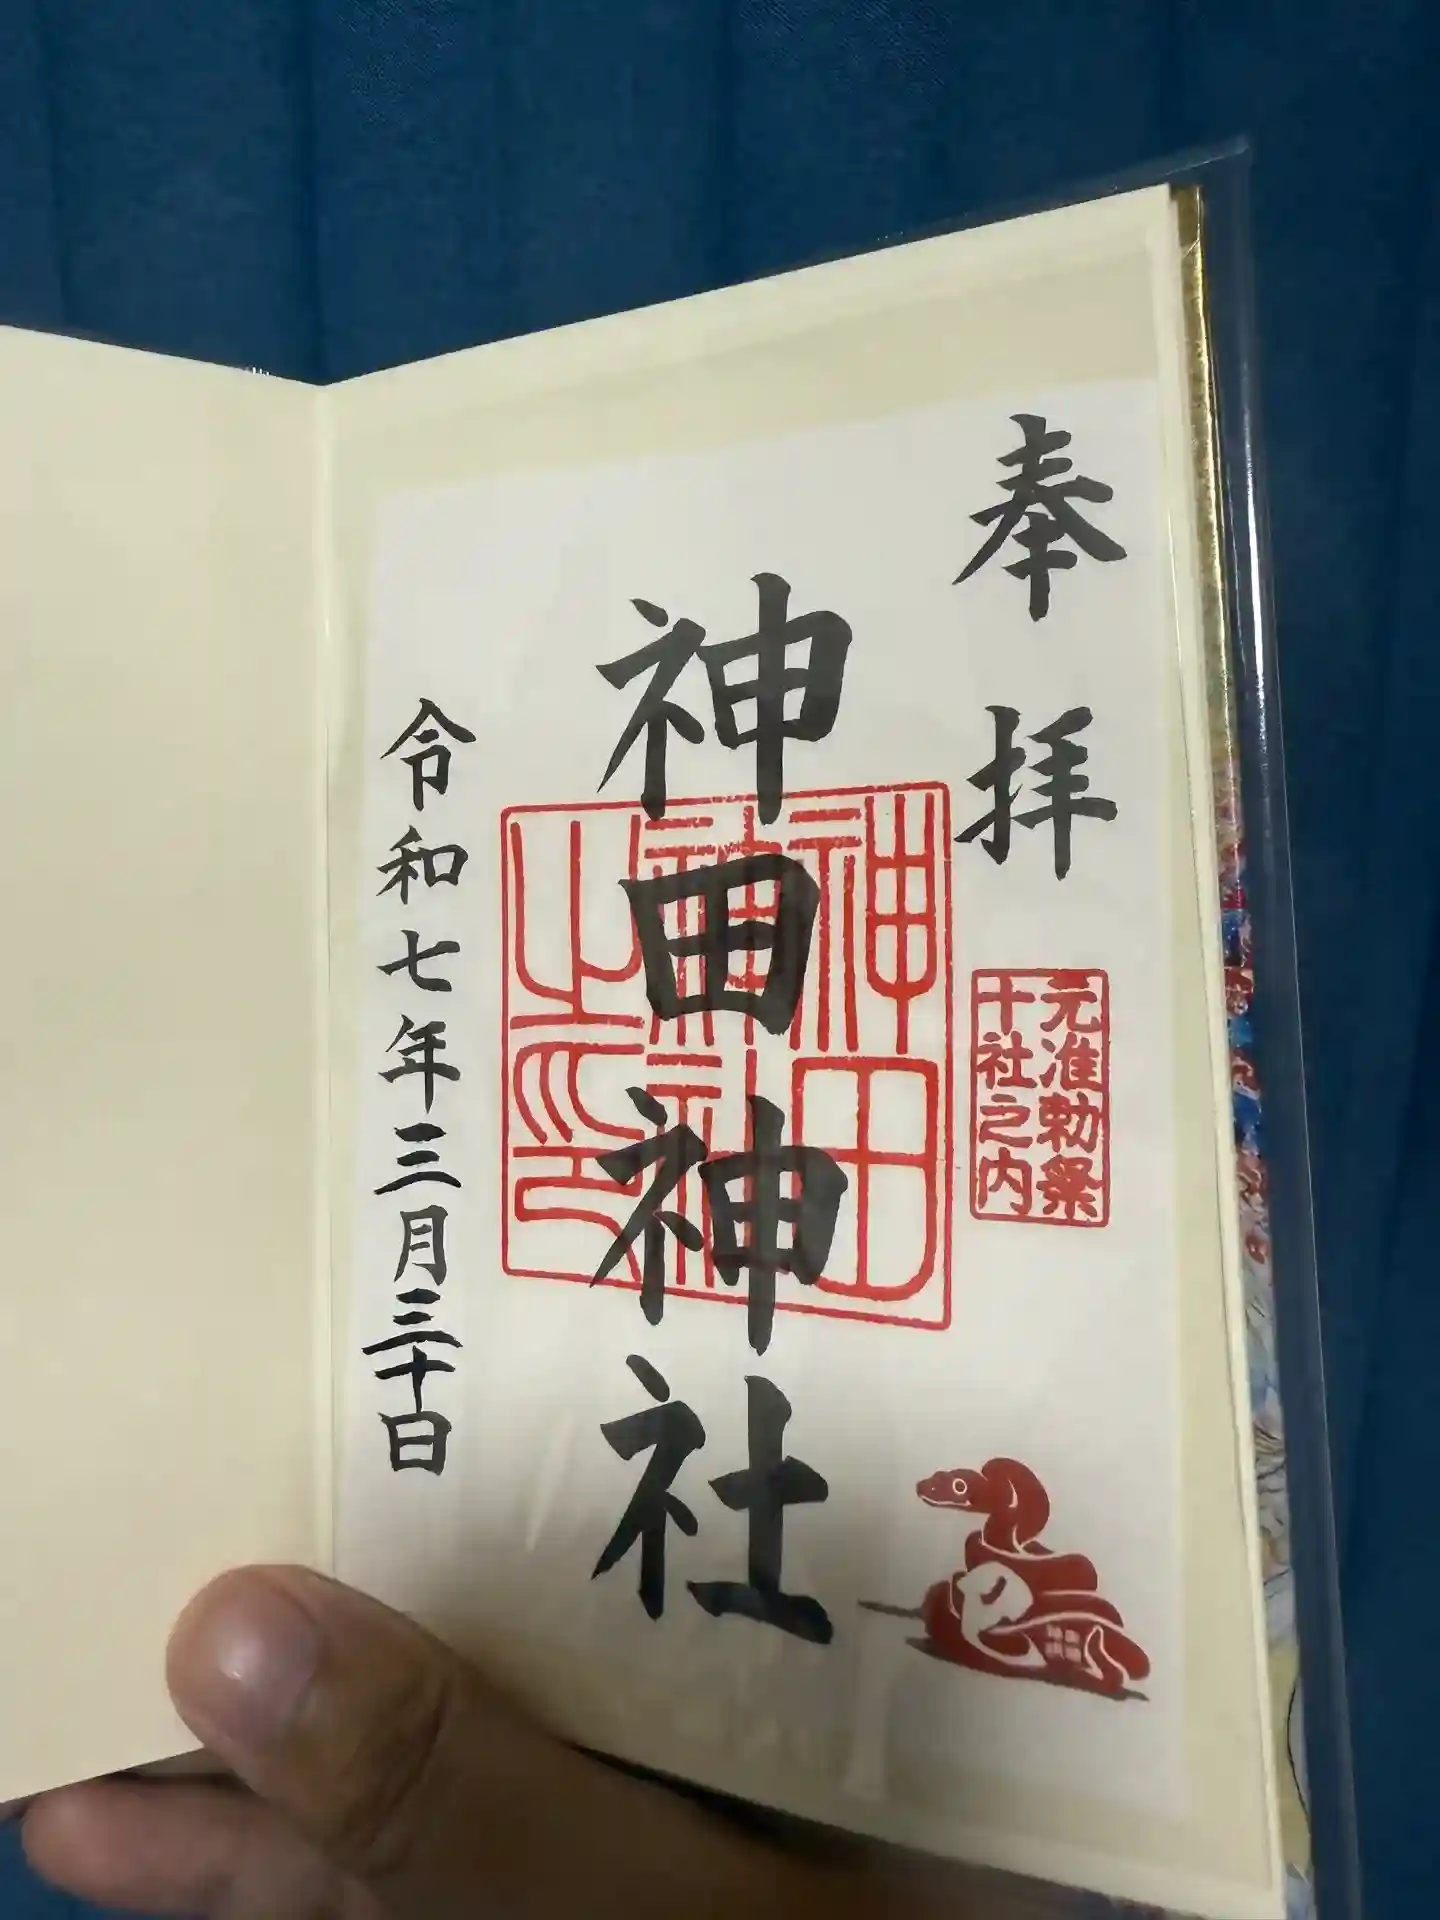 奉拝
元准勅祭
十社之内
神田神社
神田
神社
之印
巳
令和七年三月三十日